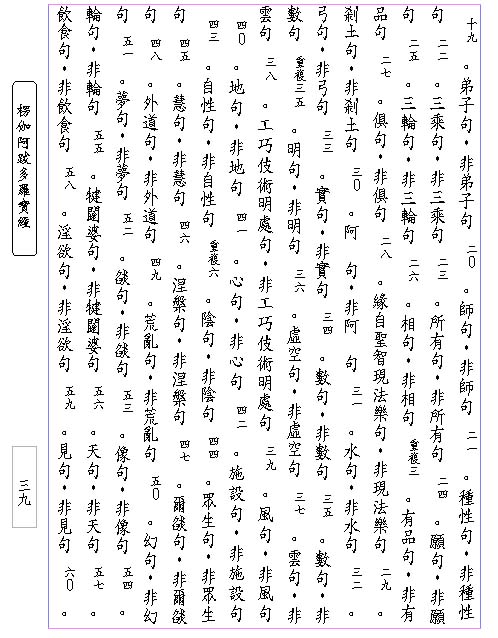 十九 。弟子句•非弟子句 二○ 。師句•非師句 二一 。種性句•非種性
句 二二 。三乘句•非三乘句 二三 。所有句•非所有句 二四 。願句•非願
句 二五 。三輪句•非三輪句 二六 。相句•非相句 重複三 。有品句•非有
品句 二七 。俱句•非俱句 二八 。緣自聖智現法樂句•非現法樂句 二九 。
剎土句•非剎土句 三○ 。阿 句•非阿 句 三一 。水句•非水句 三二 。
弓句•非弓句 三三 。實句•非實句 三四 。數句•非數句 三五 。數句•非
數句 重複三五 。明句•非明句 三六 。虛空句•非虛空句 三七 。雲句•非
雲句 三八 。工巧伎術明處句•非工巧伎術明處句 三九 。風句•非風句
四○ 。地句•非地句 四一 。心句•非心句 四二 。施設句•非施設句
四三 。自性句•非自性句 重複六 。陰句•非陰句 四四 。眾生句•非眾生
句 四五 。慧句•非慧句 四六 。涅槃句•非涅槃句 四七 。爾燄句•非爾燄
句 四八 。外道句•非外道句 四九 。荒亂句•非荒亂句 五○ 。幻句•非幻
句 五一 。夢句•非夢句 五二 。燄句•非燄句 五三 。像句•非像句 五四 。
輪句•非輪句 五五 。犍闥婆句•非犍闥婆句 五六 。天句•非天句 五七 。
飲食句•非飲食句 五八 。淫欲句•非淫欲句 五九 。見句•非見句 六○ 。
楞伽阿跋多羅寶經
三九